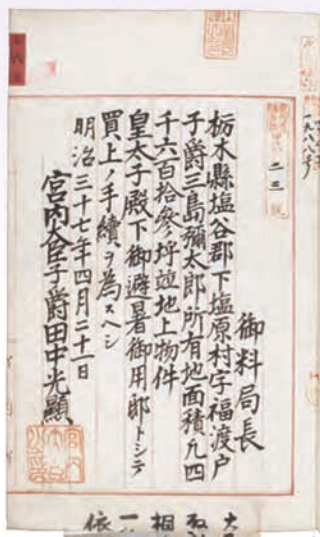 二三
御料局長
栃木縣塩谷郡下塩原村字福渡戸
子爵三島彌太郎所有地面積凡四
千六百拾参坪並地上物件
皇太子殿下御避暑御用邸トシテ
買上ノ手續ヲ為スヘシ
明治三十七年四月二十一日
宮内大臣子爵田中光顯